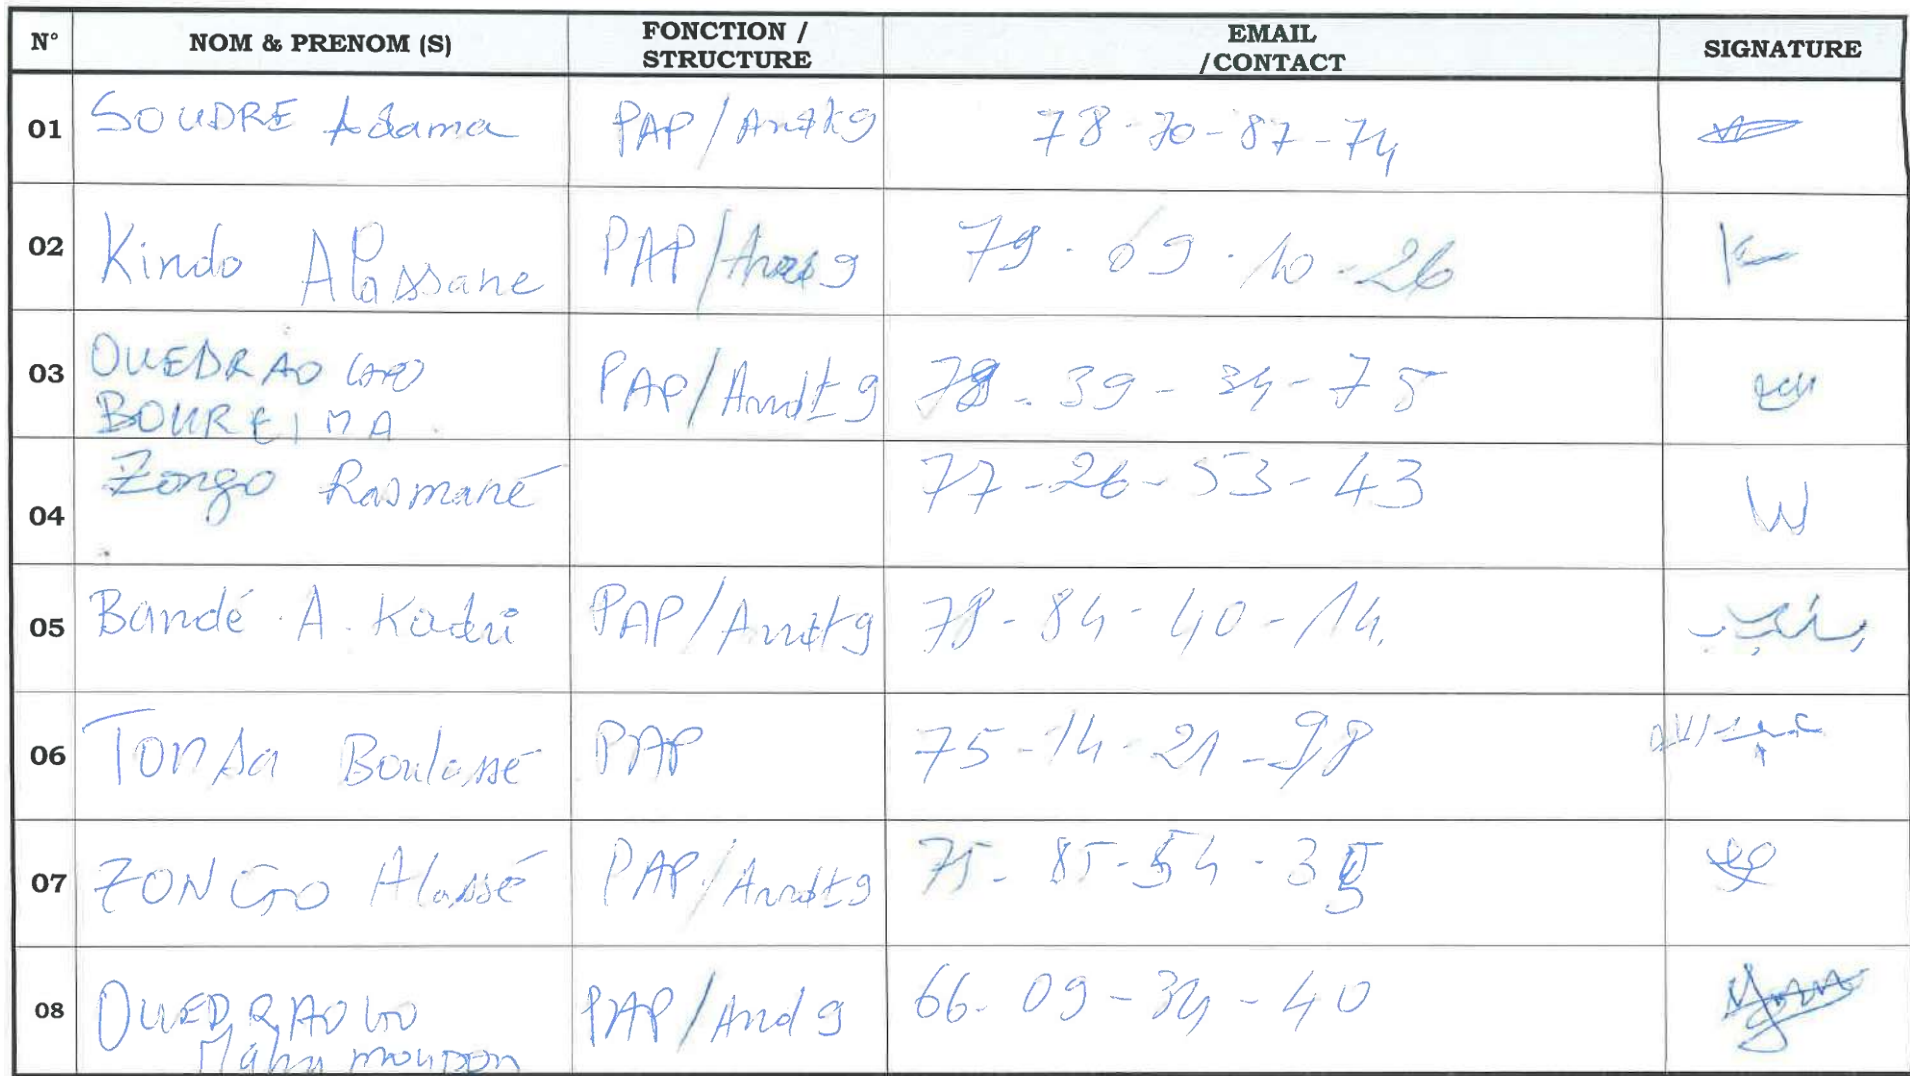 N° NOM & PRENOM (S) FONCTION / STRUCTURE EMAIL /CONTACT SIGNATURE
01 SOUDRE Adama PAP/Arrdt 9 78-70-87-74
02 Kindo Alassane PAP/ 79-69-10-26
03 OUEDRAOGO PAP/Arrdt 9 78-39-34-75
BOUREIMA
04 Zongo Rasmané 77-26-53-43
05 Bandé A. Kadri PAP/Arrdt 9 78-84-40-14
06 Tonda Boulassé PAP 75-14-21-98
07 ZONGO Alassé PAP/Arrdt 9 75-85-54-35
08 OUEDRAOGO PAP/Arrd 9 66-09-34-40